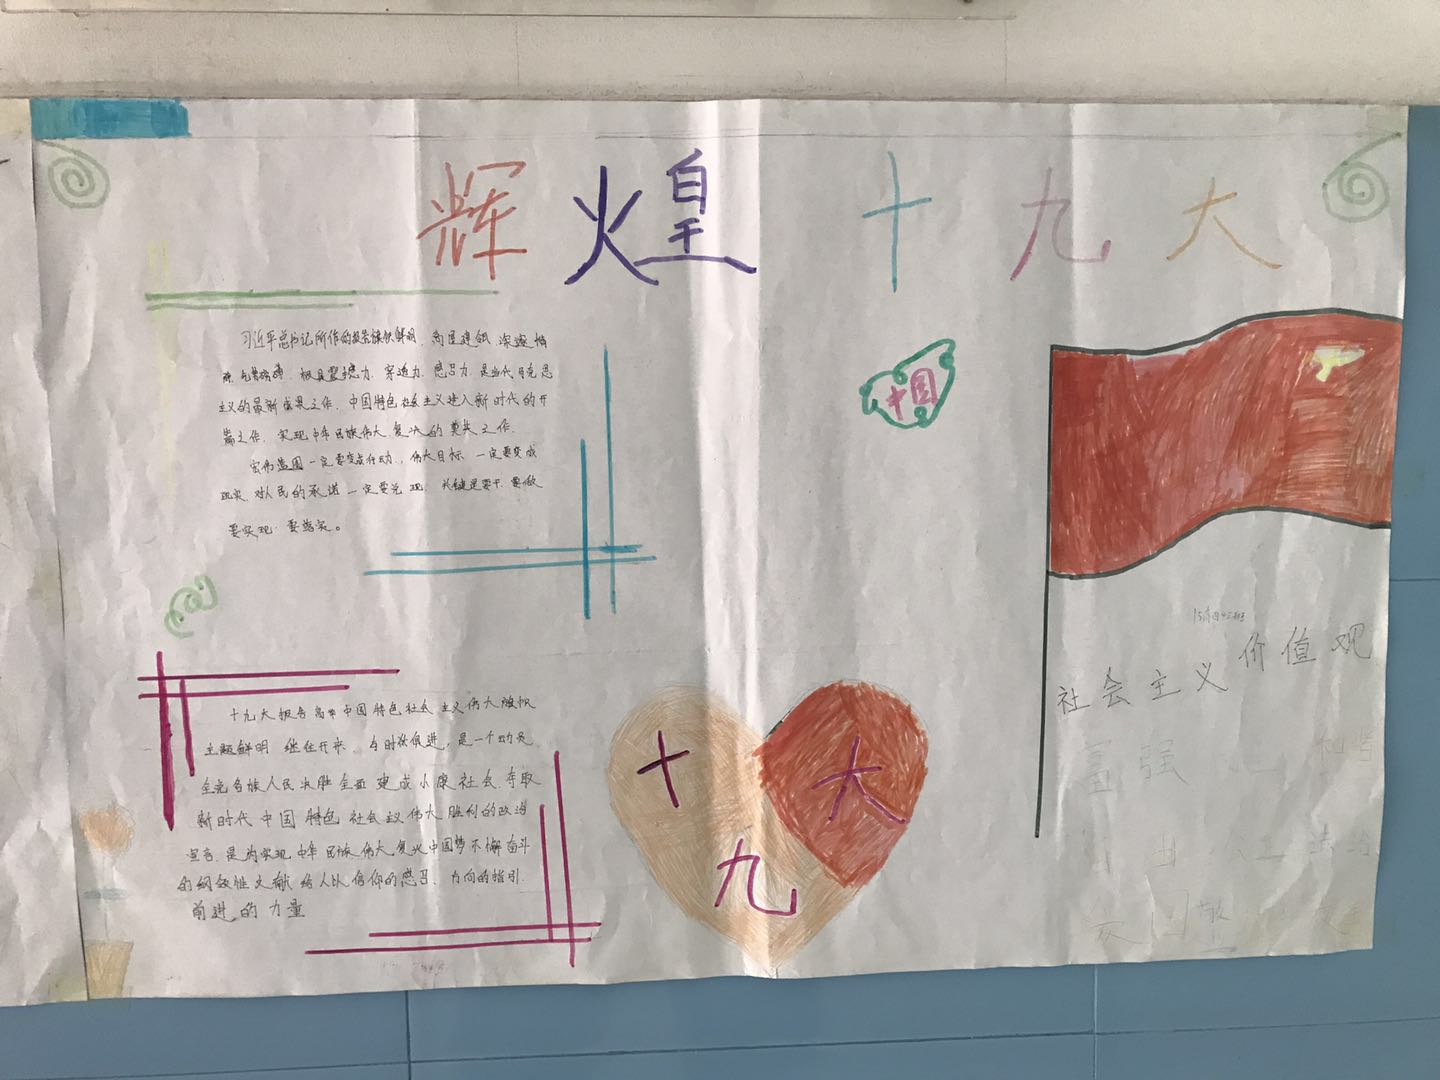 辉煌十九大
习近平总书记所作的报告旗帜鲜明、高屋建瓴、深邃
极具震撼力、穿透力、感召力、是当代马克思
主义的最新成果之作、中国特色社会主义进入新时代的开
篇之作、实现中华民族伟大复兴的奠基之作、
宏伟蓝图一定要变成行动、伟大目标一定要变成
现实、对人民的承诺一定要兑现、关键是要干、要做
要实现、要落实。
中国
十九大报告高举中国特色社会主义伟大旗帜
主题鲜明 继往开来、与时俱进,是一个动员
全党各族人民决胜全面建成小康社会、夺取
新时代中国特色社会主义伟大胜利的政治
宣言、是为实现中华民族伟大复兴中国梦不懈奋斗
的纲领性文献给人以信仰的感召、方向的指引
前进的力量
十九大
社会主义价值观
富强
和谐
法治